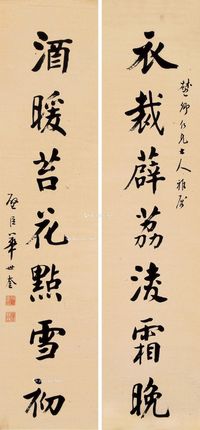 衣裁薜荔淩霜晚
卿仁兄大人雅屬
酒暖苔花點雪初
璧臣華世奎